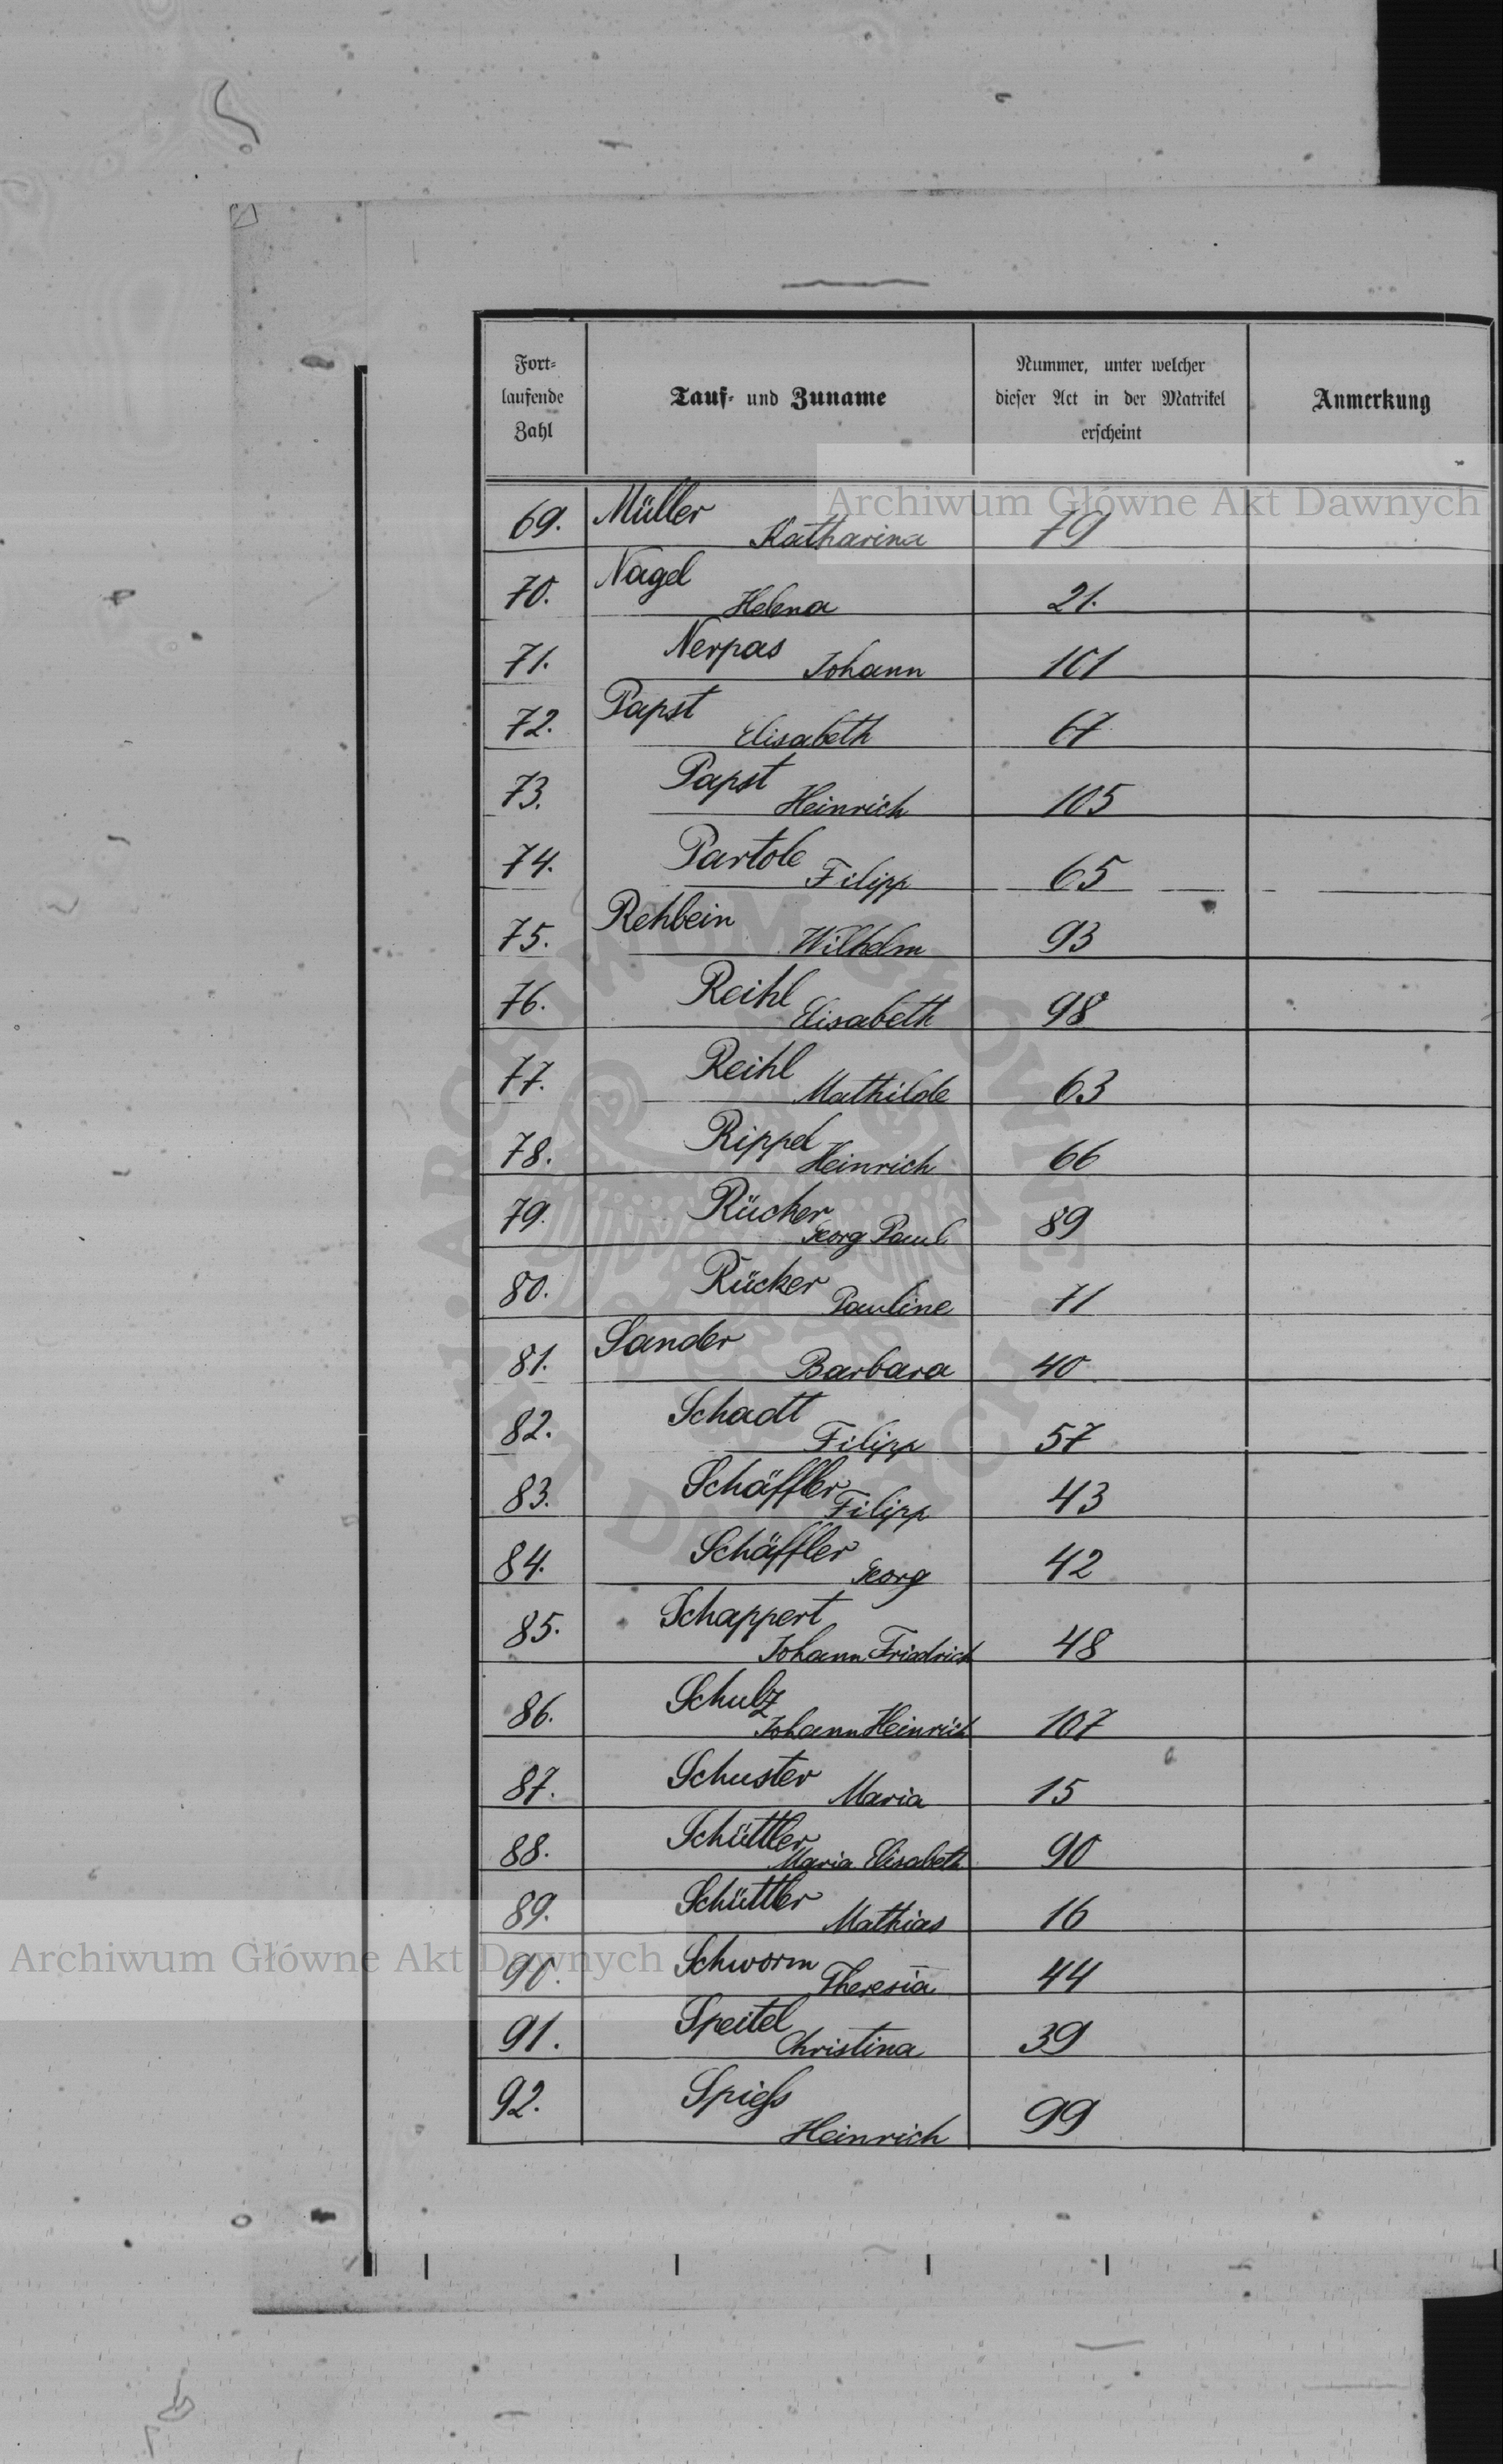 Fort-
laufende
Zahl
Tauf- und Zuname
Nummer, unter welcher
dieser Act in der Matrikel
erscheint
Anmerkung
Archiwum Główne Akt Dawnych
69. Müller Katharina 79
70. Nagel Helena 21.
71. Nerpas Johann 101
72. Papst Elisabeth 67
73. Papst Heinrich 105
74. Partole Filipp 65
75. Rehbein Wilhelm 93
76. Reihl Elisabeth 98
77. Reihl Mathilde 63
78. Rippel Heinrich 66
79. Rücker Georg Paul 89
80. Rücker Pauline 71
81. Sander Barbara 40
82. Schadt Filipp 57
83. Schäffler Filipp 43
84. Schäffler Georg 42
85. Schappert Johann Friedrich 48
86. Schulz Johann Heinrich 107
87. Schuster Maria 15
88. Schüttler Maria Elisabeth 90
89. Schüttler Mathias 16
90. Schworm Theresia 44
91. Speitel Christina 39
92. Spiess Heinrich 99
Archiwum Główne Akt Dawnych
ARCHIWUM GŁÓWNE AKT DAWNYCH